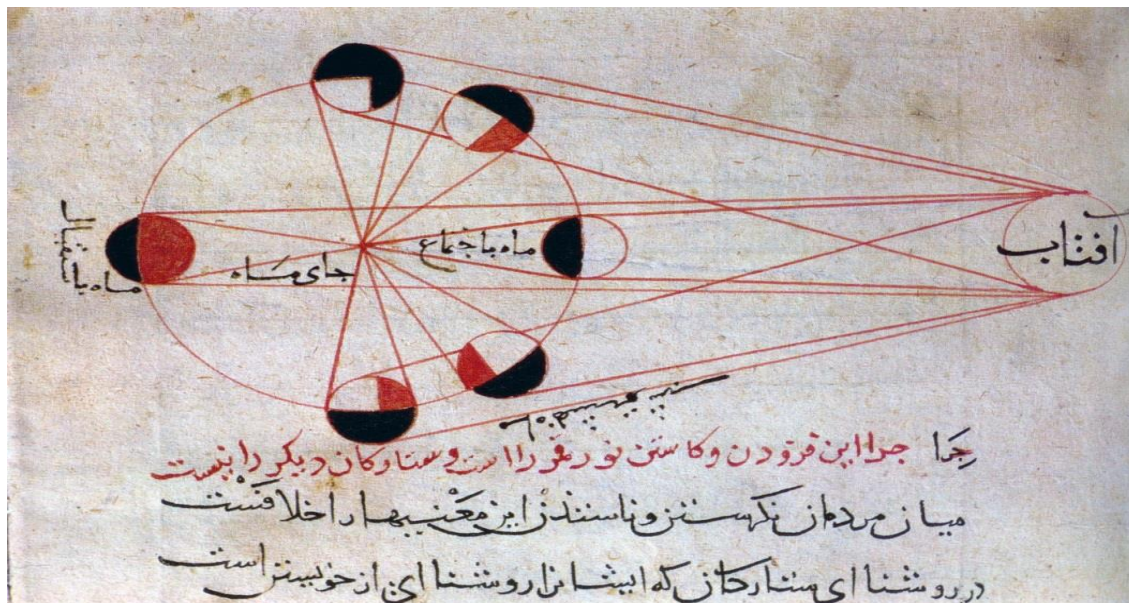 افتاب
ماه باجتماع
جای مَاه
ماه باستقبال
جِرا جرا این فزودن و کاستن نور قمر را است و ستارکان دیکر را نیست
میان مردمان نکرستن و این معنیها را اخلافست
در روشنا ای ستارکان که ایشانرا روشنا ای از خویشتن است